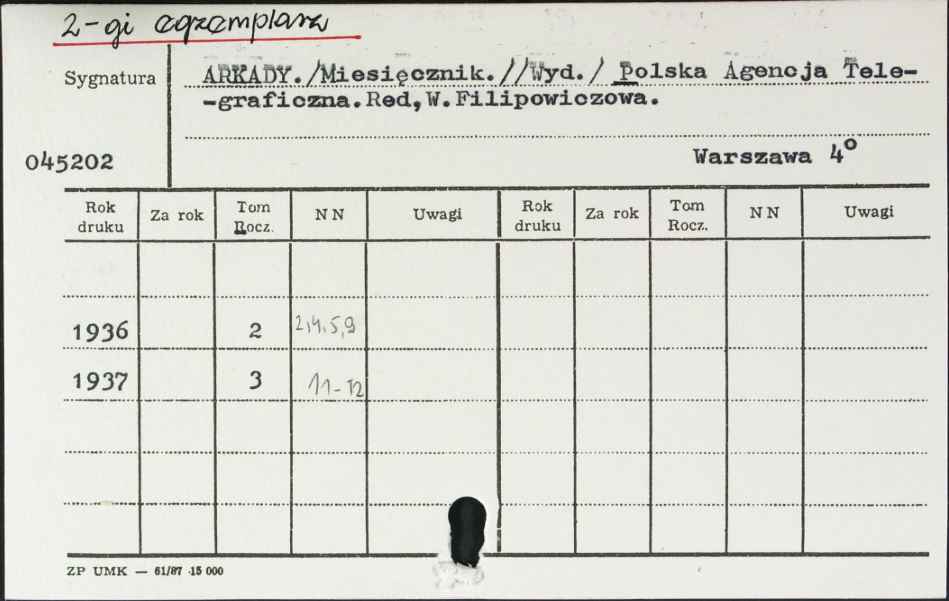 2-gi egzemplarz
Sygnatura ARKADY./Miesięcznik.//Wyd./ Polska Agencja Tele-
-graficzna.Red,W.Filipowiczowa.
045202 Warszawa 4°
Rok druku Za rok Tom Rocz. NN Uwagi Rok druku Za rok Tom Rocz. NN Uwagi
1936 2 2,4,5,9
1937 3 11-12
ZP UMK — 61/87 15 000